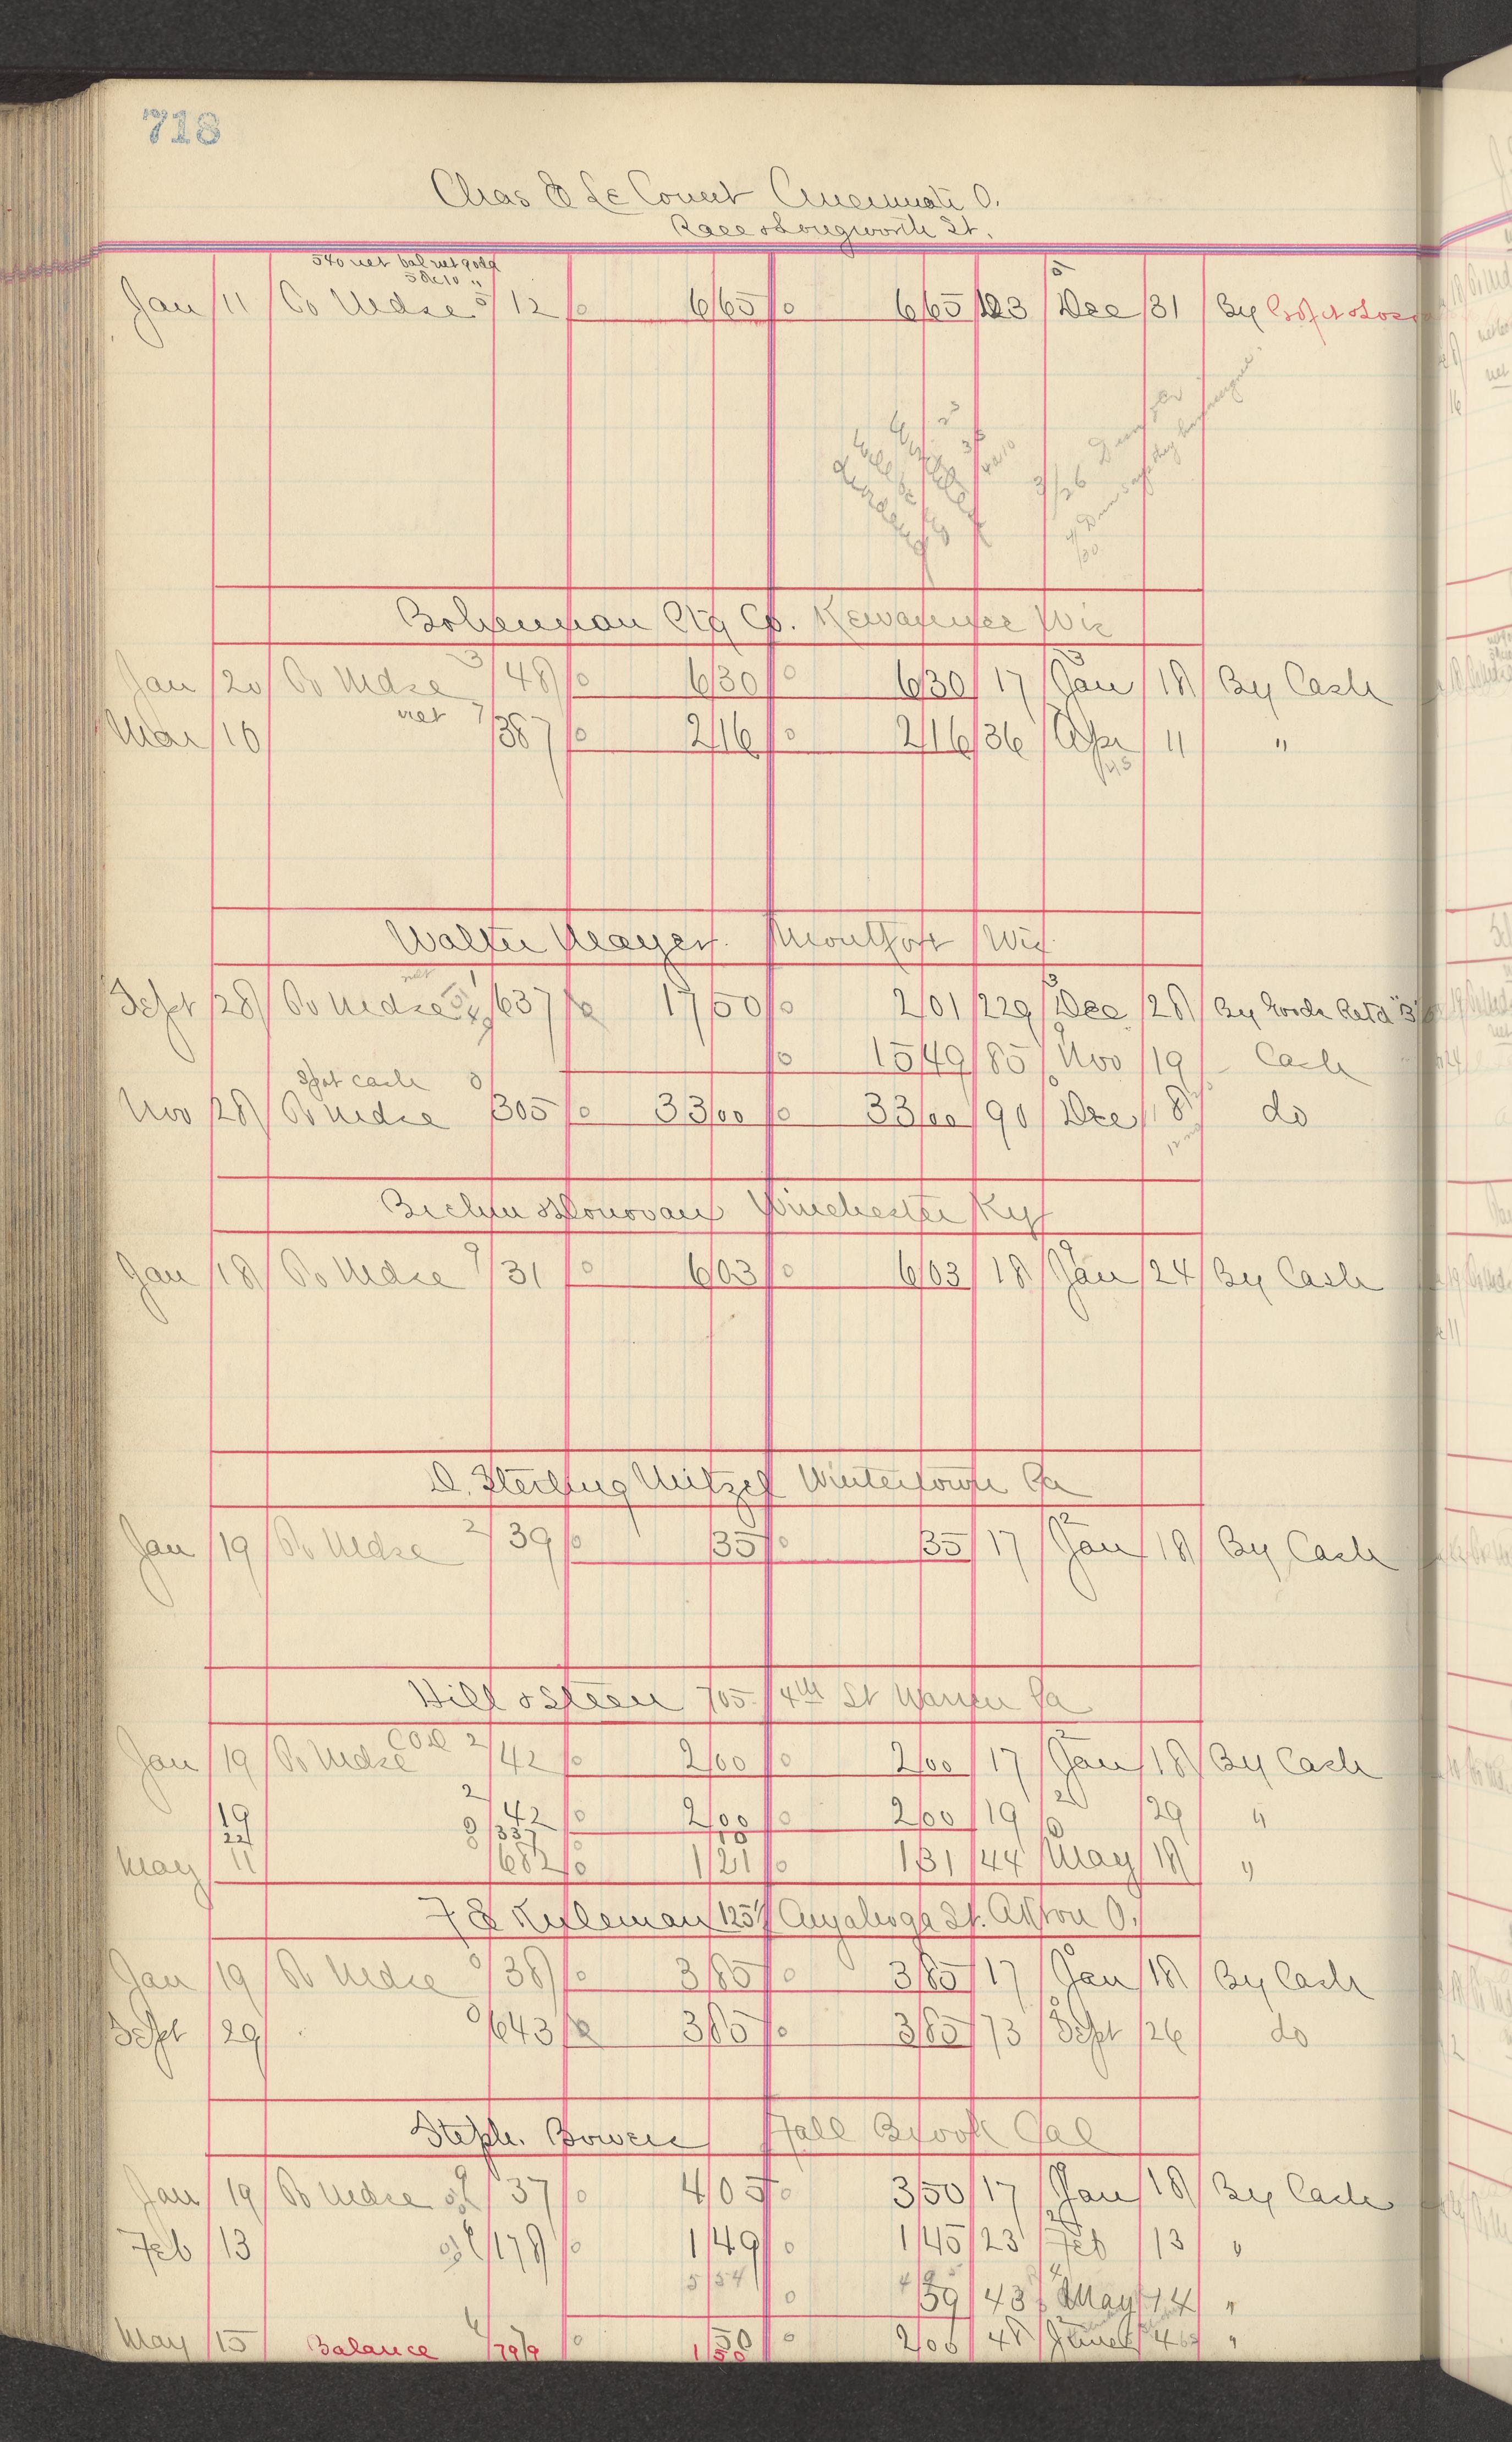 718
Chas E Le Court Cincinnati O.
Race & Longworth St.
5 Dec 10 "
Jan 11 To Mdse 5/12 6 65 6 65 123 Dec 31 By Prof & Loss
3/26
4/30
Bohemian Ctg Co. Kewaunee Wis
Jan 20 To Mdse 3/48 6 30 6 30 17 Jan 18 By Cash
net
Mar 16 7/387 2 16 2 16 36 Apr 11 "
Walter Mayer Montfort Wis
net
Sept 28 To Mdse 637 17 50 2 01 229 Dec 28 By Goods Retd
15 49 85 Nov 19 Cash
Spot cash
Nov 28 To Mdse 305 33 00 33 00 90 Dec 18 do
& Donovan Winchester Ky
Jan 18 To Mdse 9/31 6 03 6 03 18 Jan 24 By Cash
D. Sterling Mitzel Wintertown Pa
Jan 19 To Mdse 2/39 35 35 17 Jan 18 By Cash
Hill & Steen 705 4th St Warren Pa
COD
Jan 19 To Mdse 2/42 2 00 2 00 17 Jan 18 By Cash
19 2/42 2 00 2 00 19 29 "
22 3/337 10
May 11 682 1 21 1 31 44 May 18 "
F E Kifleman 125 Cuyahoga St. Akron O.
Jan 19 To Mdse 9/38 3 85 3 85 17 Jan 18 By Cash
Sept 29 9/643 3 85 3 85 73 Sept 26 do
Steph. Bowers Fall Brook Cal
Jan 19 To Mdse 9/37 4 05 3 50 17 Jan 18 By Cash
Feb 13 178 1 49 1 45 23 Feb 13 "
5 54
59 43 May 14 "
May 15 Balance 6/799 1 50 2 06 48 June 4 "
1 50